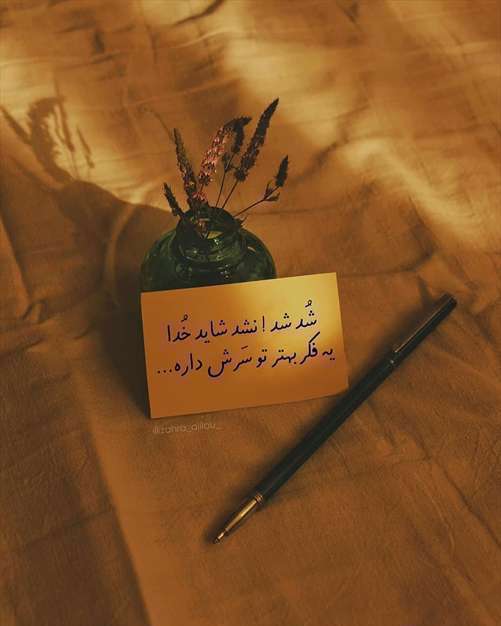 شُد شد ! نشد شاید خُدا
یه فکر بهتر تو سَرش داره...